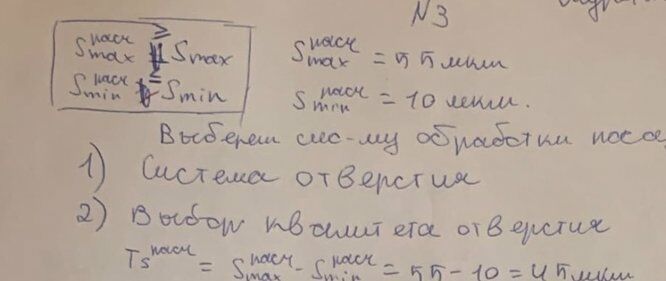 N3
S max расч ≥ S max
S min расч ≤ S min
S max расч = 55 мкм
S min расч = 10 мкм.
Выберем сис-му обработки
1) Система отверстия
2) Выбор квалитета отверстия
Ts расч = S max расч - S min расч = 55 - 10 = 45 мкм